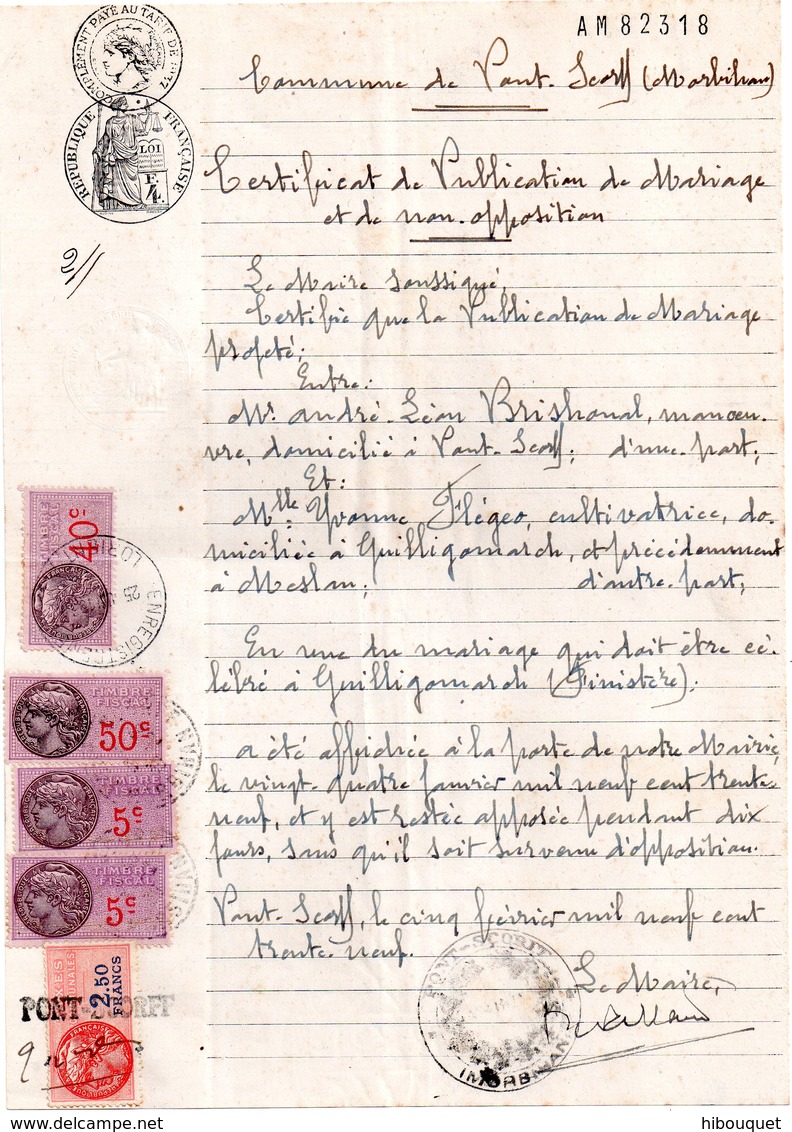 AM82318
COMPLÉMENT PAYÉ AU TARIF DE 1937
RÉPUBLIQUE FRANÇAISE
LOI
F.
4.
Commune de Pont-Scorff (Morbihan)
Certificat de Publication de Mariage
et de non-opposition
2//
Le Maire soussigné,
Certifie que la Publication de Mariage
projeté;
Entre:
Mr. André-Léon Brishoual, manoeu-
vre, domicilié à Pont-Scorff; d'une part,
Et:
Mlle: Yvonne Flégeo, cultivatrice, do-
miciliée à Guilligomarch, et précédemment
à Meslan; d'autre part,
En vue du mariage qui doit être cé-
lébré à Guilligomarch (Finistère);
a été affichée à la porte de notre Mairie,
le vingt-quatre janvier mil neuf cent trente-
neuf, et y est restée apposée pendant dix
jours, sans qu'il soit survenu d'opposition.
Pont-Scorff, le cinq février mil neuf cent
trente-neuf.
Le Maire,
PONT-SCORFF
(MORBIHAN)
TIMBRE
FISCAL
40c
ENREGISTREMENT
LORIENT
25
TIMBRE
FISCAL
50c
TIMBRE
FISCAL
5c
TIMBRE
FISCAL
5c
TAXES
COMMUNALES
2.50
FRANCS
PONT-SCORFF
hibouquet
www.delcampe.net